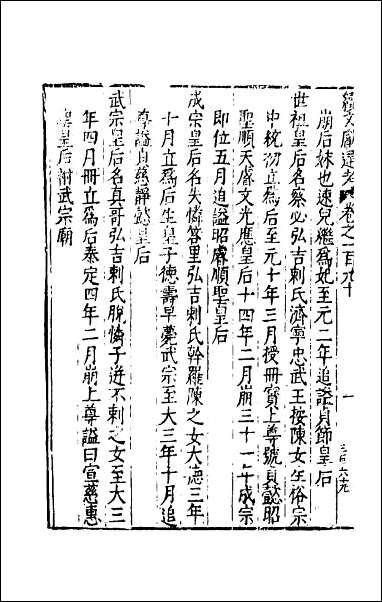 續文獻通考 卷之一百九十
一
崩后妹也速兒繼爲妃至元二年追謚貞節皇后
世祖皇后名察必弘吉剌氏濟寧忠武王按陳女生裕宗
中統初立爲后至元十年三月授冊寶上尊號貞懿昭
聖順天睿文光應皇后十四年二月崩三十一年成宗
即位五月追謚昭睿順聖皇后
成宗皇后名失憐答里弘吉剌氏斡羅陳之女大德三年
十月立爲后生皇子德壽早薨武宗至大三年十月追
尊謚貞慈靜懿皇后
武宗皇后名真哥弘吉剌氏脫憐子迸不剌之女至大三
年四月冊立爲后泰定四年二月崩上尊謚曰宣慈惠
聖皇后祔武宗廟